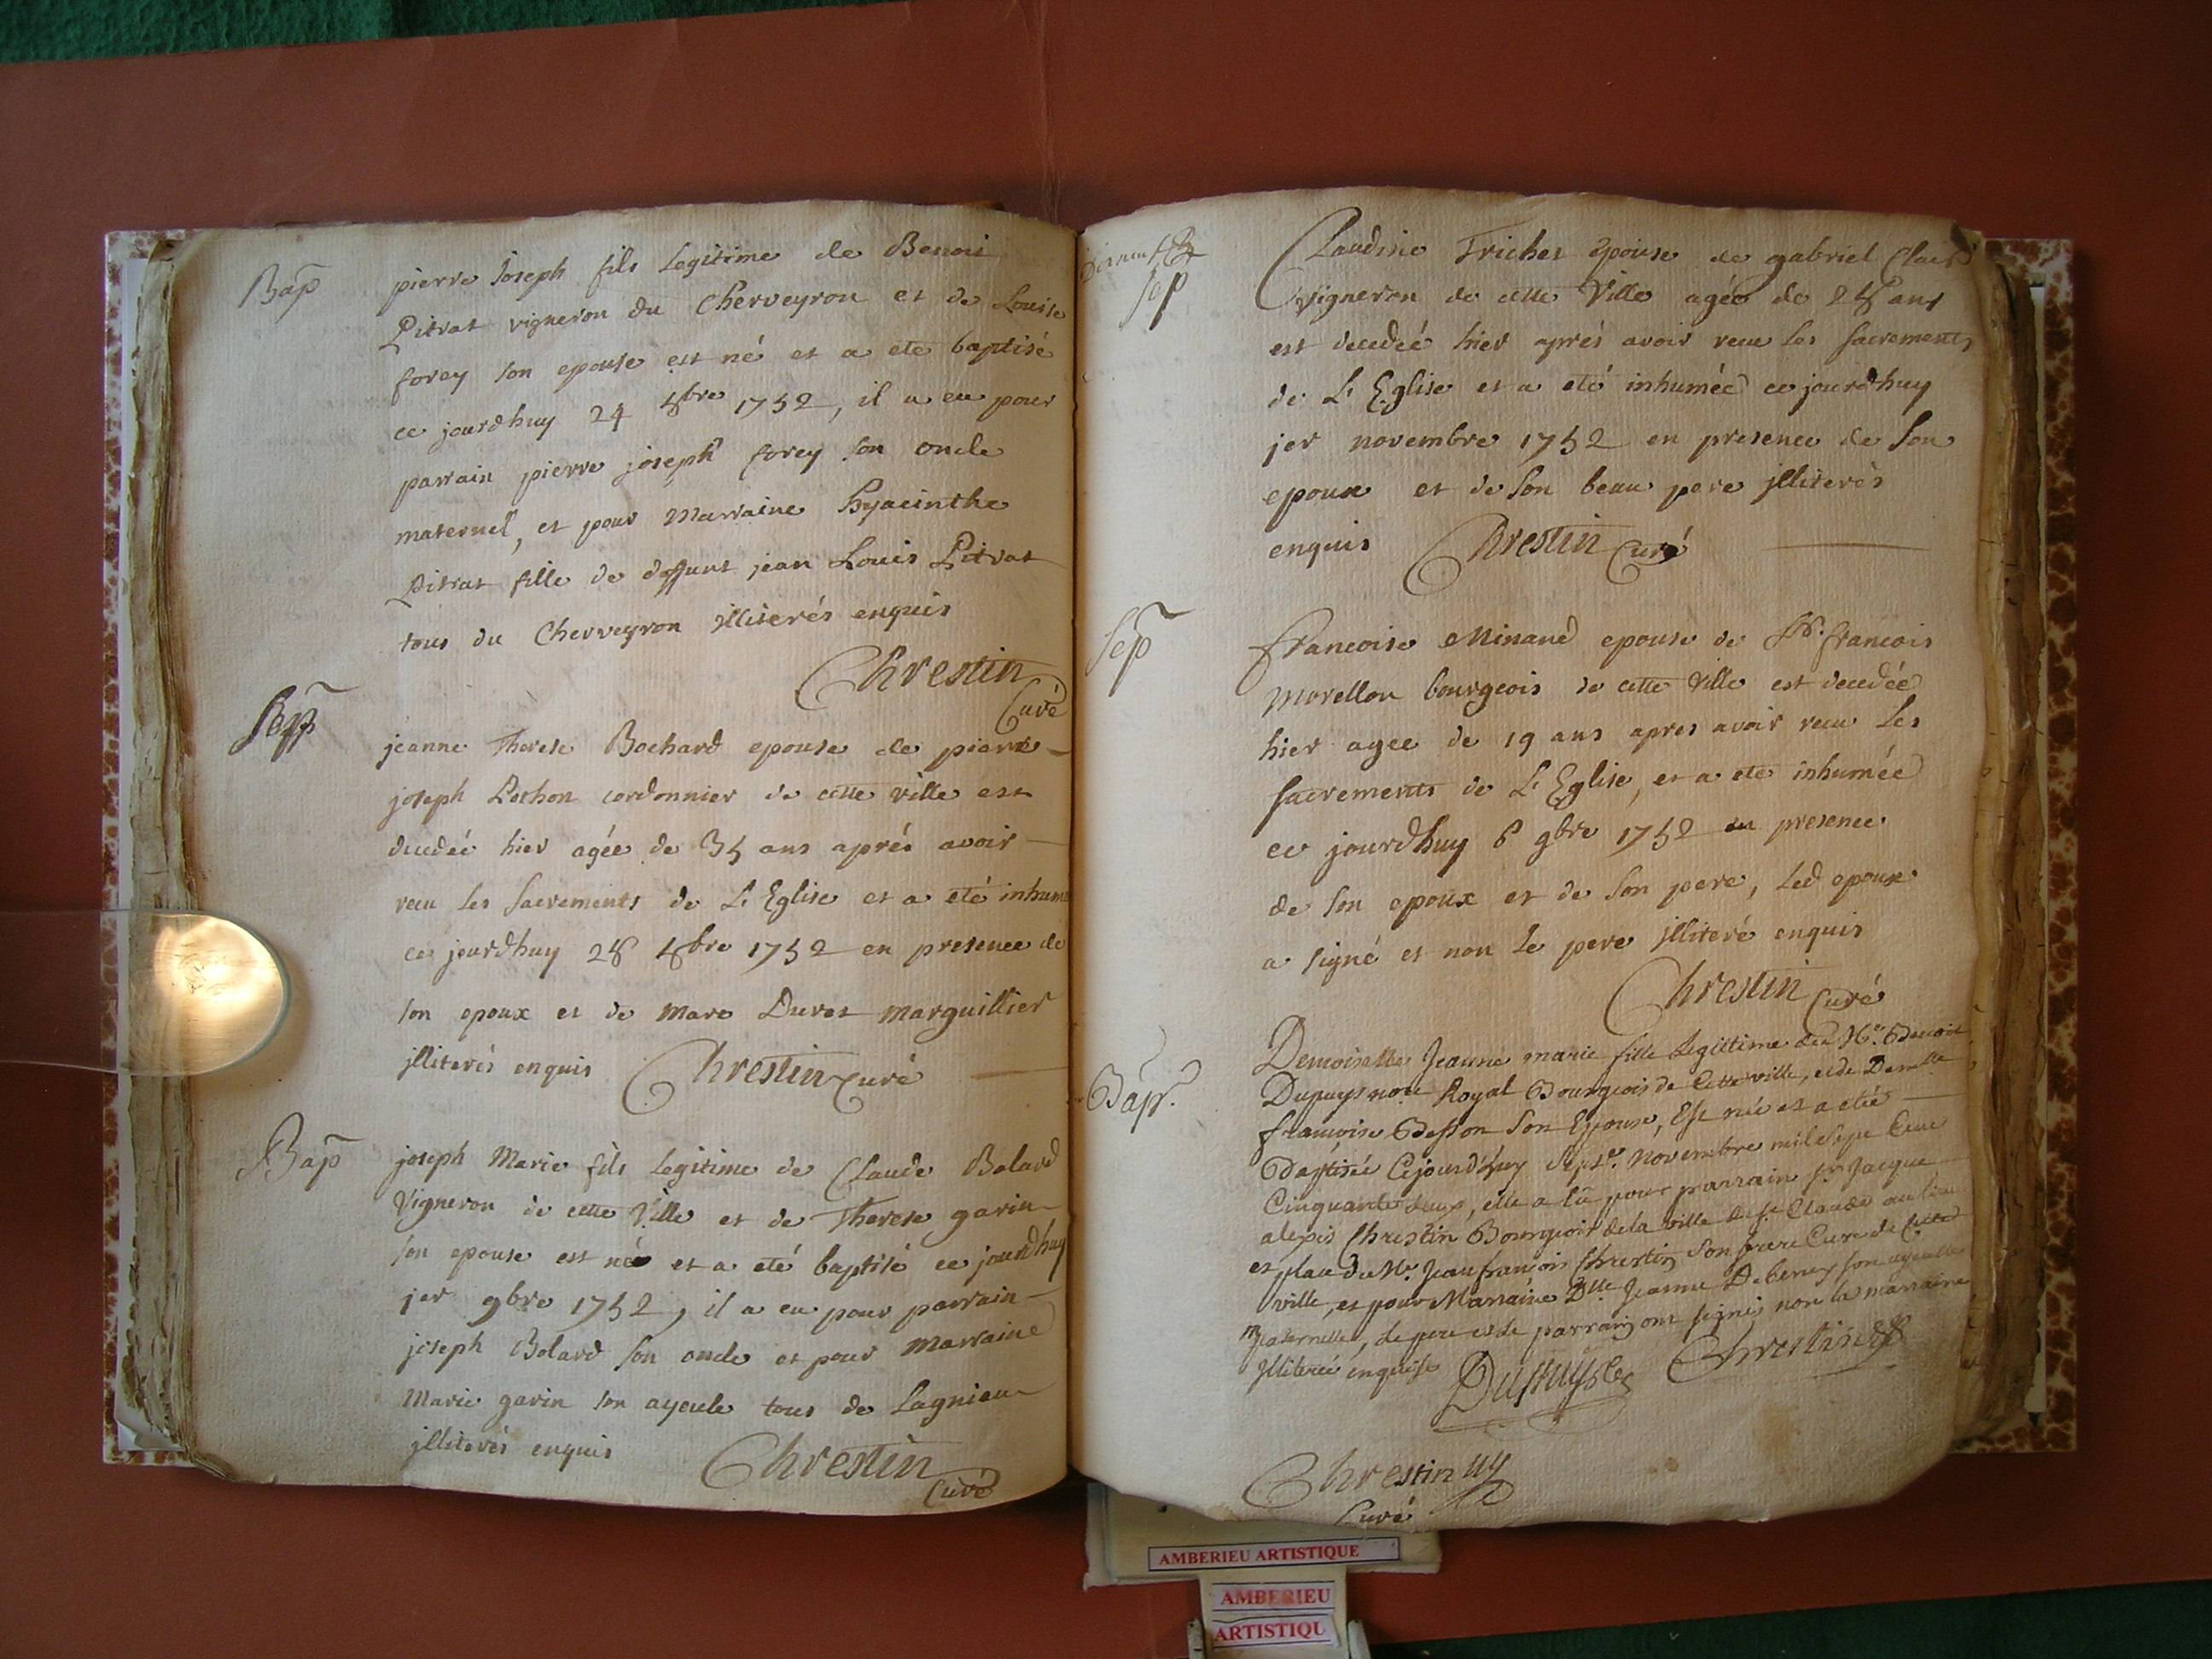 Bap
pierre Joseph fils legitime de Benoi
Pitrat vigneron du Cherveyron et de Louise
forey son epouse est né et a eté baptisé
ce jourdhuy 24 8bre 1752, il a eu pour
parrain pierre joseph forey son oncle
maternel, et pour marraine hyacinthe
Pitrat fille de deffunt jean Louis Pitrat
tous du Cherveyron illiterés enquis
Chrestin
Curé
Sep
jeanne Therese Bochard epouse de pierre
joseph Pochon cordonnier de cette ville est
decedée hier agée de 35 ans aprés avoir
recu les sacrements de L'Eglise et a eté inhum
ce jourdhuy 28 8bre 1752 en presence de
son epoux et de marc Duret marguillier
jlliterés enquis Chrestin Curé
Bap
joseph Marie fils legitime de Claude Bolard
Vigneron de cette Ville et de Therese garin
son epouse est né et a eté baptisé ce jourdhuy
jer 9bre 1752, il a eu pour parrain
joseph Bolard son oncle et pour marraine
Marie garin son ayeule tous de Lagnieu
jlliterés enquis Chrestin
Curé
Sep
Claudine Trichet epouse de gabriel Clair
Vigneron de cette Ville agée de 28 ans
est decedeé hier aprés avoir recu les sacrements
de L'Eglise et a eté inhumée ce jourdhuy
jer novembre 1752 en presence de son
epoux et de son beau pere jlliterés
enquis Chrestin Curé
Sep
francoise Minand epouse de Sr. francois
Morellon bourgeois de cette Ville est decedée
hier agee de 19 ans apres avoir recu les
sacrements de L'Eglise, et a eté inhumée
ce jourdhuy 6 9bre 1752 en presence
de son epoux et de son pere, led epoux
a signé et non le pere jlliteré enquis
Chrestin Curé
Bap.
Demoiselle Jeanne marie fille Legitime de Benoit
Dupuys Royal Bourgeois de Cette ville, et de Demelle
francoise Besson Son Epouse, Est née et a eté
Baptisée Cejourd'huy Sept novembre mil Sept Cent
Cinquante deux, elle a Eu pour parrain sr. Jacque
alexis Chrestin Bourgeois de la ville de st. Claude au lieu
et place de Jean francois Chrestin Son frere Curé de Cette
ville, et pour Marraine Dlle Jeanne Debeney son ayeulle
maternelle, le pere et le parrain ont signés non la marraine
Jlliterée enquise Dupuys Chrestin
Chrestin
Curé
AMBERIEU ARTISTIQUE
AMBERIEU
ARTISTIQU